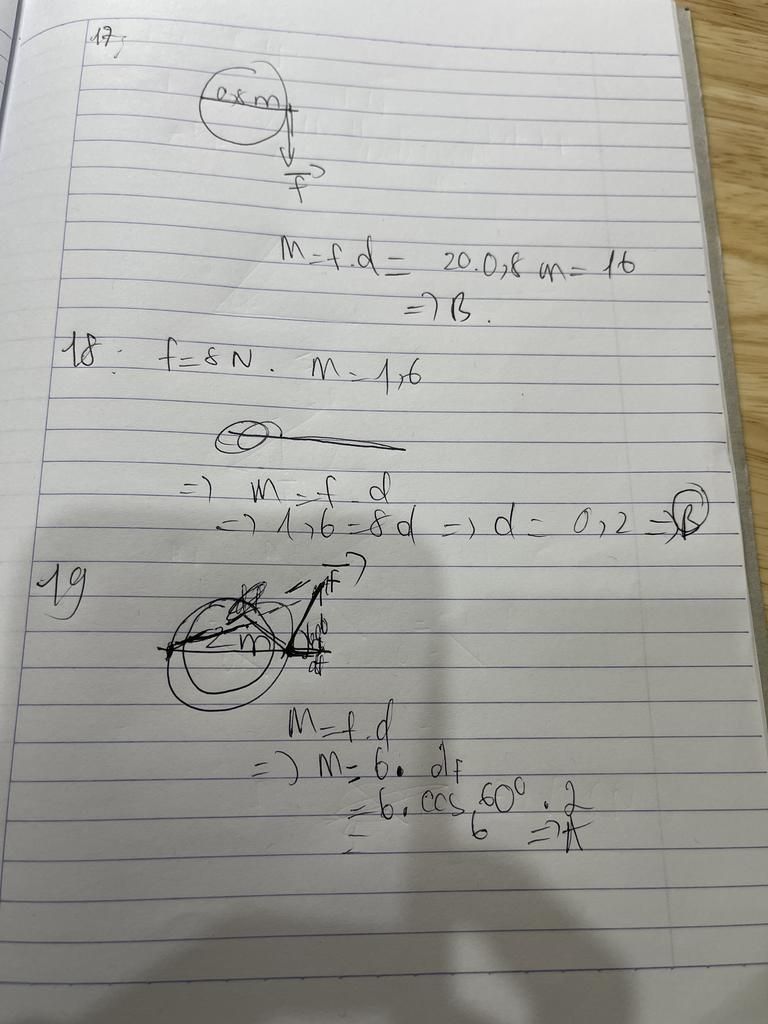 17;
0,8 m
f
M = f.d = 20.0,8 m = 16
=> B.
18: f = 8 N. M = 1,6
=> M = f.d
=> 1,6 = 8d => d = 0,2 => B
19
f
2 m
df
M = f.d
=> M = 6. df
= 6. cos 60° . 2
= 6 => A